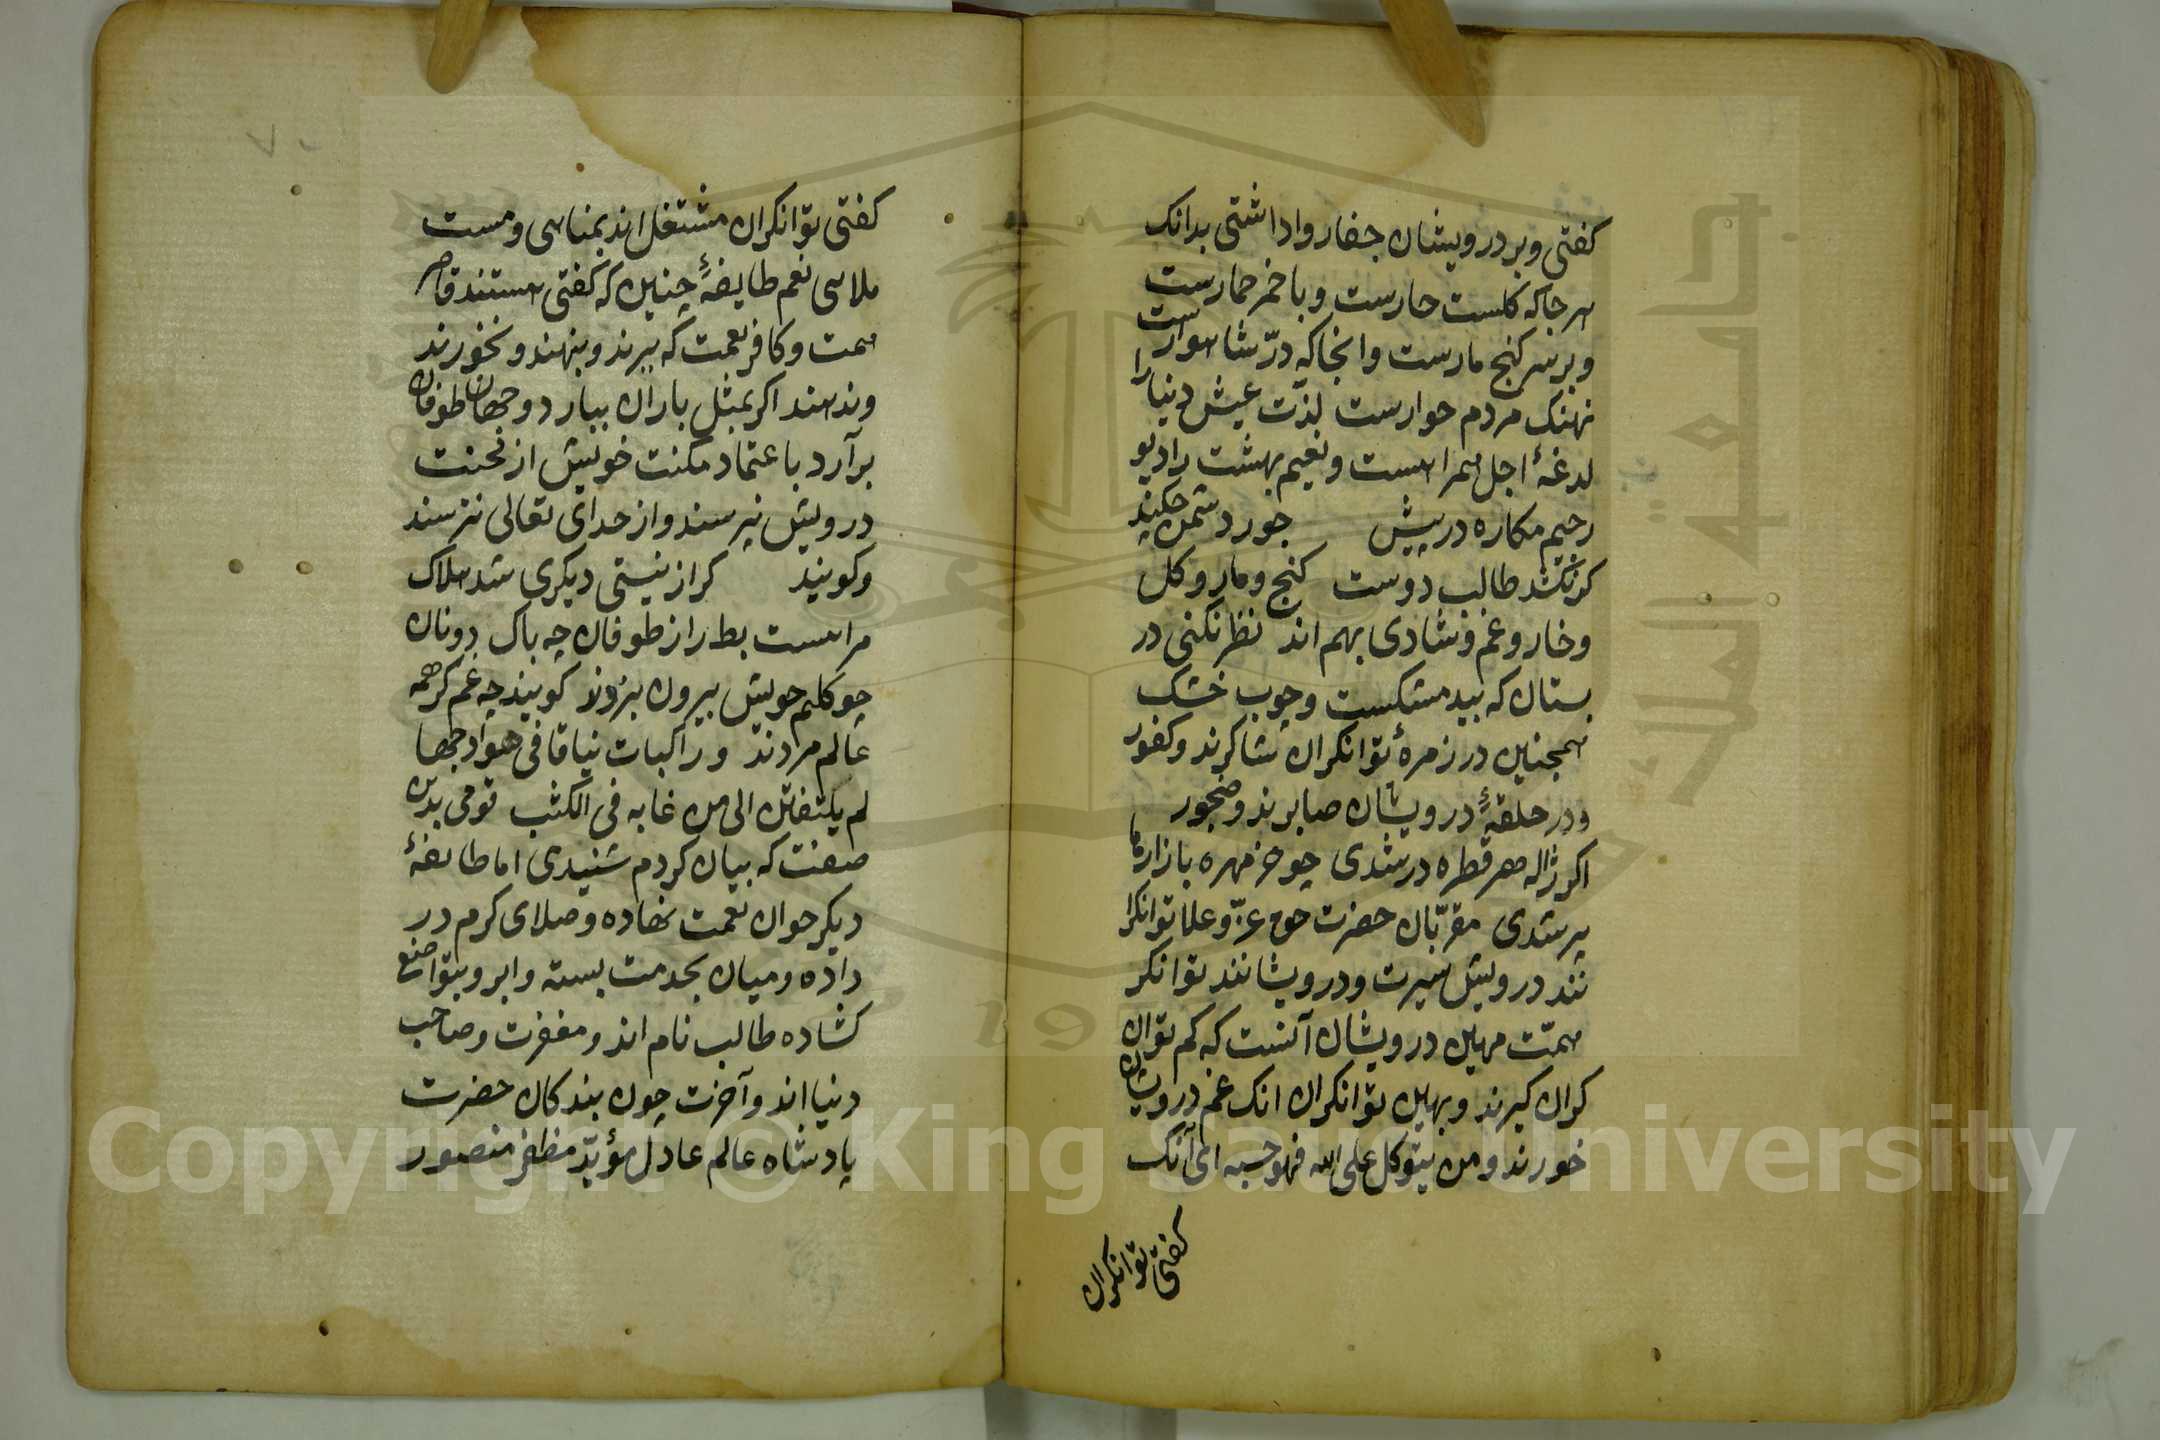 کفتی و بر درویشان جفا روا داشتی بدانک
هر جا که کلست خارست و با خمر خمارست
و بر سر کنج مارست و انجا که درّ شاهوارست
نهنک مردم خوارست لذّت عیش دنیا را
لدغهٔ اجل همراهست و نعیم بهشت را دیو
رجیم مکاره در پیش جور دشمن چکند
کر نکشد طالب دوست کنج و مار و کل
و خار و غم و شادی بهم اند نظر نکنی در
بستان که بید مشکست و چوب خشک
همچنین در زمرهٔ توانکران شاکرند و کفور
و در حلقهٔ درویشان صابرند و ضجور
اکر ژاله هر قطره در شدی چو خر مهره بازارها
پر شدی مقرّبان حضرت حق عزّ و علا توانکرا
نند درویش سیرت و درویشانند توانکر
همّت مهین درویشان آنست که کم توان
کران کیرند و بهین توانکران انک غم درویشان
خورند و من یتوکل علی الله فهو حسبه ای آنک
کفتی توانکران
کفتی توانکران مشتغل اند بمناهی و مست
ملاهی نعم طایفهٔ چنین که کفتی هستند قاصر
همت و کافر نعمت که ببرند و بنهند و نخورند
و ندهند اکر بمثل باران نبارد و جهان طوفان
برآرد باعتماد مکنت خویش از محنت
درویش نپرسند و از خدای تعالی نترسند
و کویند کر از نیستی دیکری شد هلاک
مراهست بط را ز طوفان چه باک دونان
چو کلیم خویش بیرون بردند کویند چه غم کر همه
عالم مردند و راکبات نیاقا فی هوادجها
لم یلتفتن الی من غابه فی الکثب قومی بدین
صفت که بیان کردم شنیدی اما طایفهٔ
دیکر خوان نعمت نهاده و صلای کرم در
داده و میان بخدمت بسته و ابرو بتواضع
کشاده طالب نام اند و مغفرت و صاحب
دنیا اند و آخرت چون بندکان حضرت
پادشاه عالم عادل مؤیّد مظفر منصور
Copyright © King Saud University
جامعة الملك سعود
19